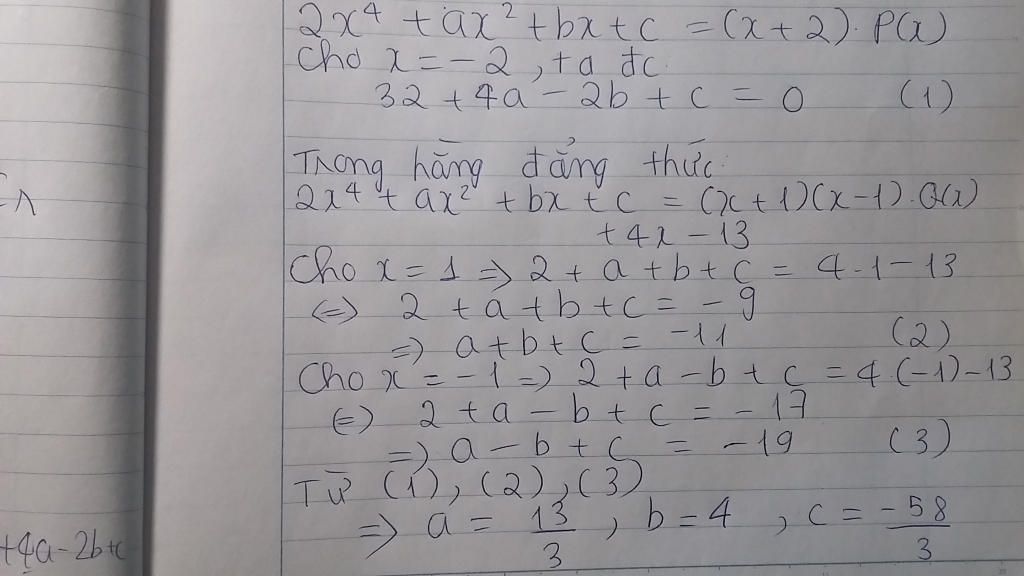 2x⁴ + ax² + bx + c = (x+2). P(x)
Cho x = -2, ta đc
32 + 4a - 2b + c = 0 (1)
Trong hằng đẳng thức:
2x⁴ + ax² + bx + c = (x+1)(x-1).Q(x)
+4x - 13
Cho x = 1 => 2 + a + b + c = 4.1 - 13
<=> 2 + a + b + c = -9
=> a + b + c = -11 (2)
Cho x = -1 => 2 + a - b + c = 4.(-1) - 13
<=> 2 + a - b + c = -17
=> a - b + c = -19 (3)
Từ (1), (2), (3)
=> a = 13/3, b = 4, c = -58/3
+4a - 2b + c